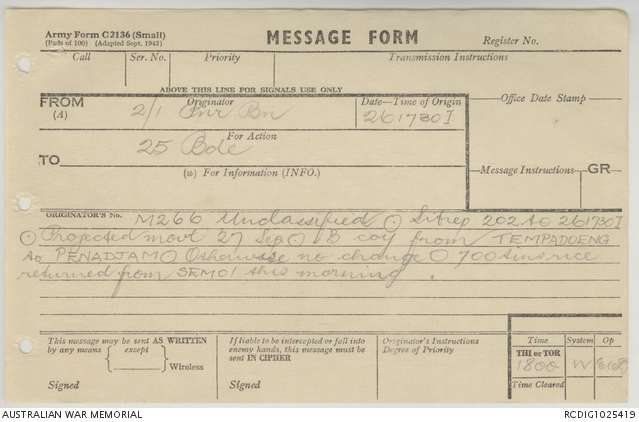 Army Form C2136 (Small)
(Pads of 100) (Adapted Sept. 1942)
MESSAGE FORM
Register No.
Call
Ser. No.
Priority
Transmission Instructions
ABOVE THIS LINE FOR SIGNALS USE ONLY
FROM
(A)
Originator
2/1 Pnr Bn
Date—Time of Origin
261730I
Office Date Stamp
For Action
25 Bde
TO
(w) For Information (INFO.)
Message Instructions
GR
ORIGINATOR'S No.
M266 Unclassified ⊙ Sitrep 202 to 261730I
⊙ Projected movt 27 Sep ⊙ B coy from TEMPADOENG
to PENADJAM ⊙ Otherwise no change ⊙ 700 tins rice
returned from SEMOI this morning .
This message may be sent AS WRITTEN
by any means
except
Wireless
Signed
If liable to be intercepted or fall into
enemy hands, this message must be
sent IN CIPHER
Signed
Originator's Instructions
Degree of Priority
Time
System
Op
THI or TOR
1800
W
Time Cleared
AUSTRALIAN WAR MEMORIAL
RCDIG1025419